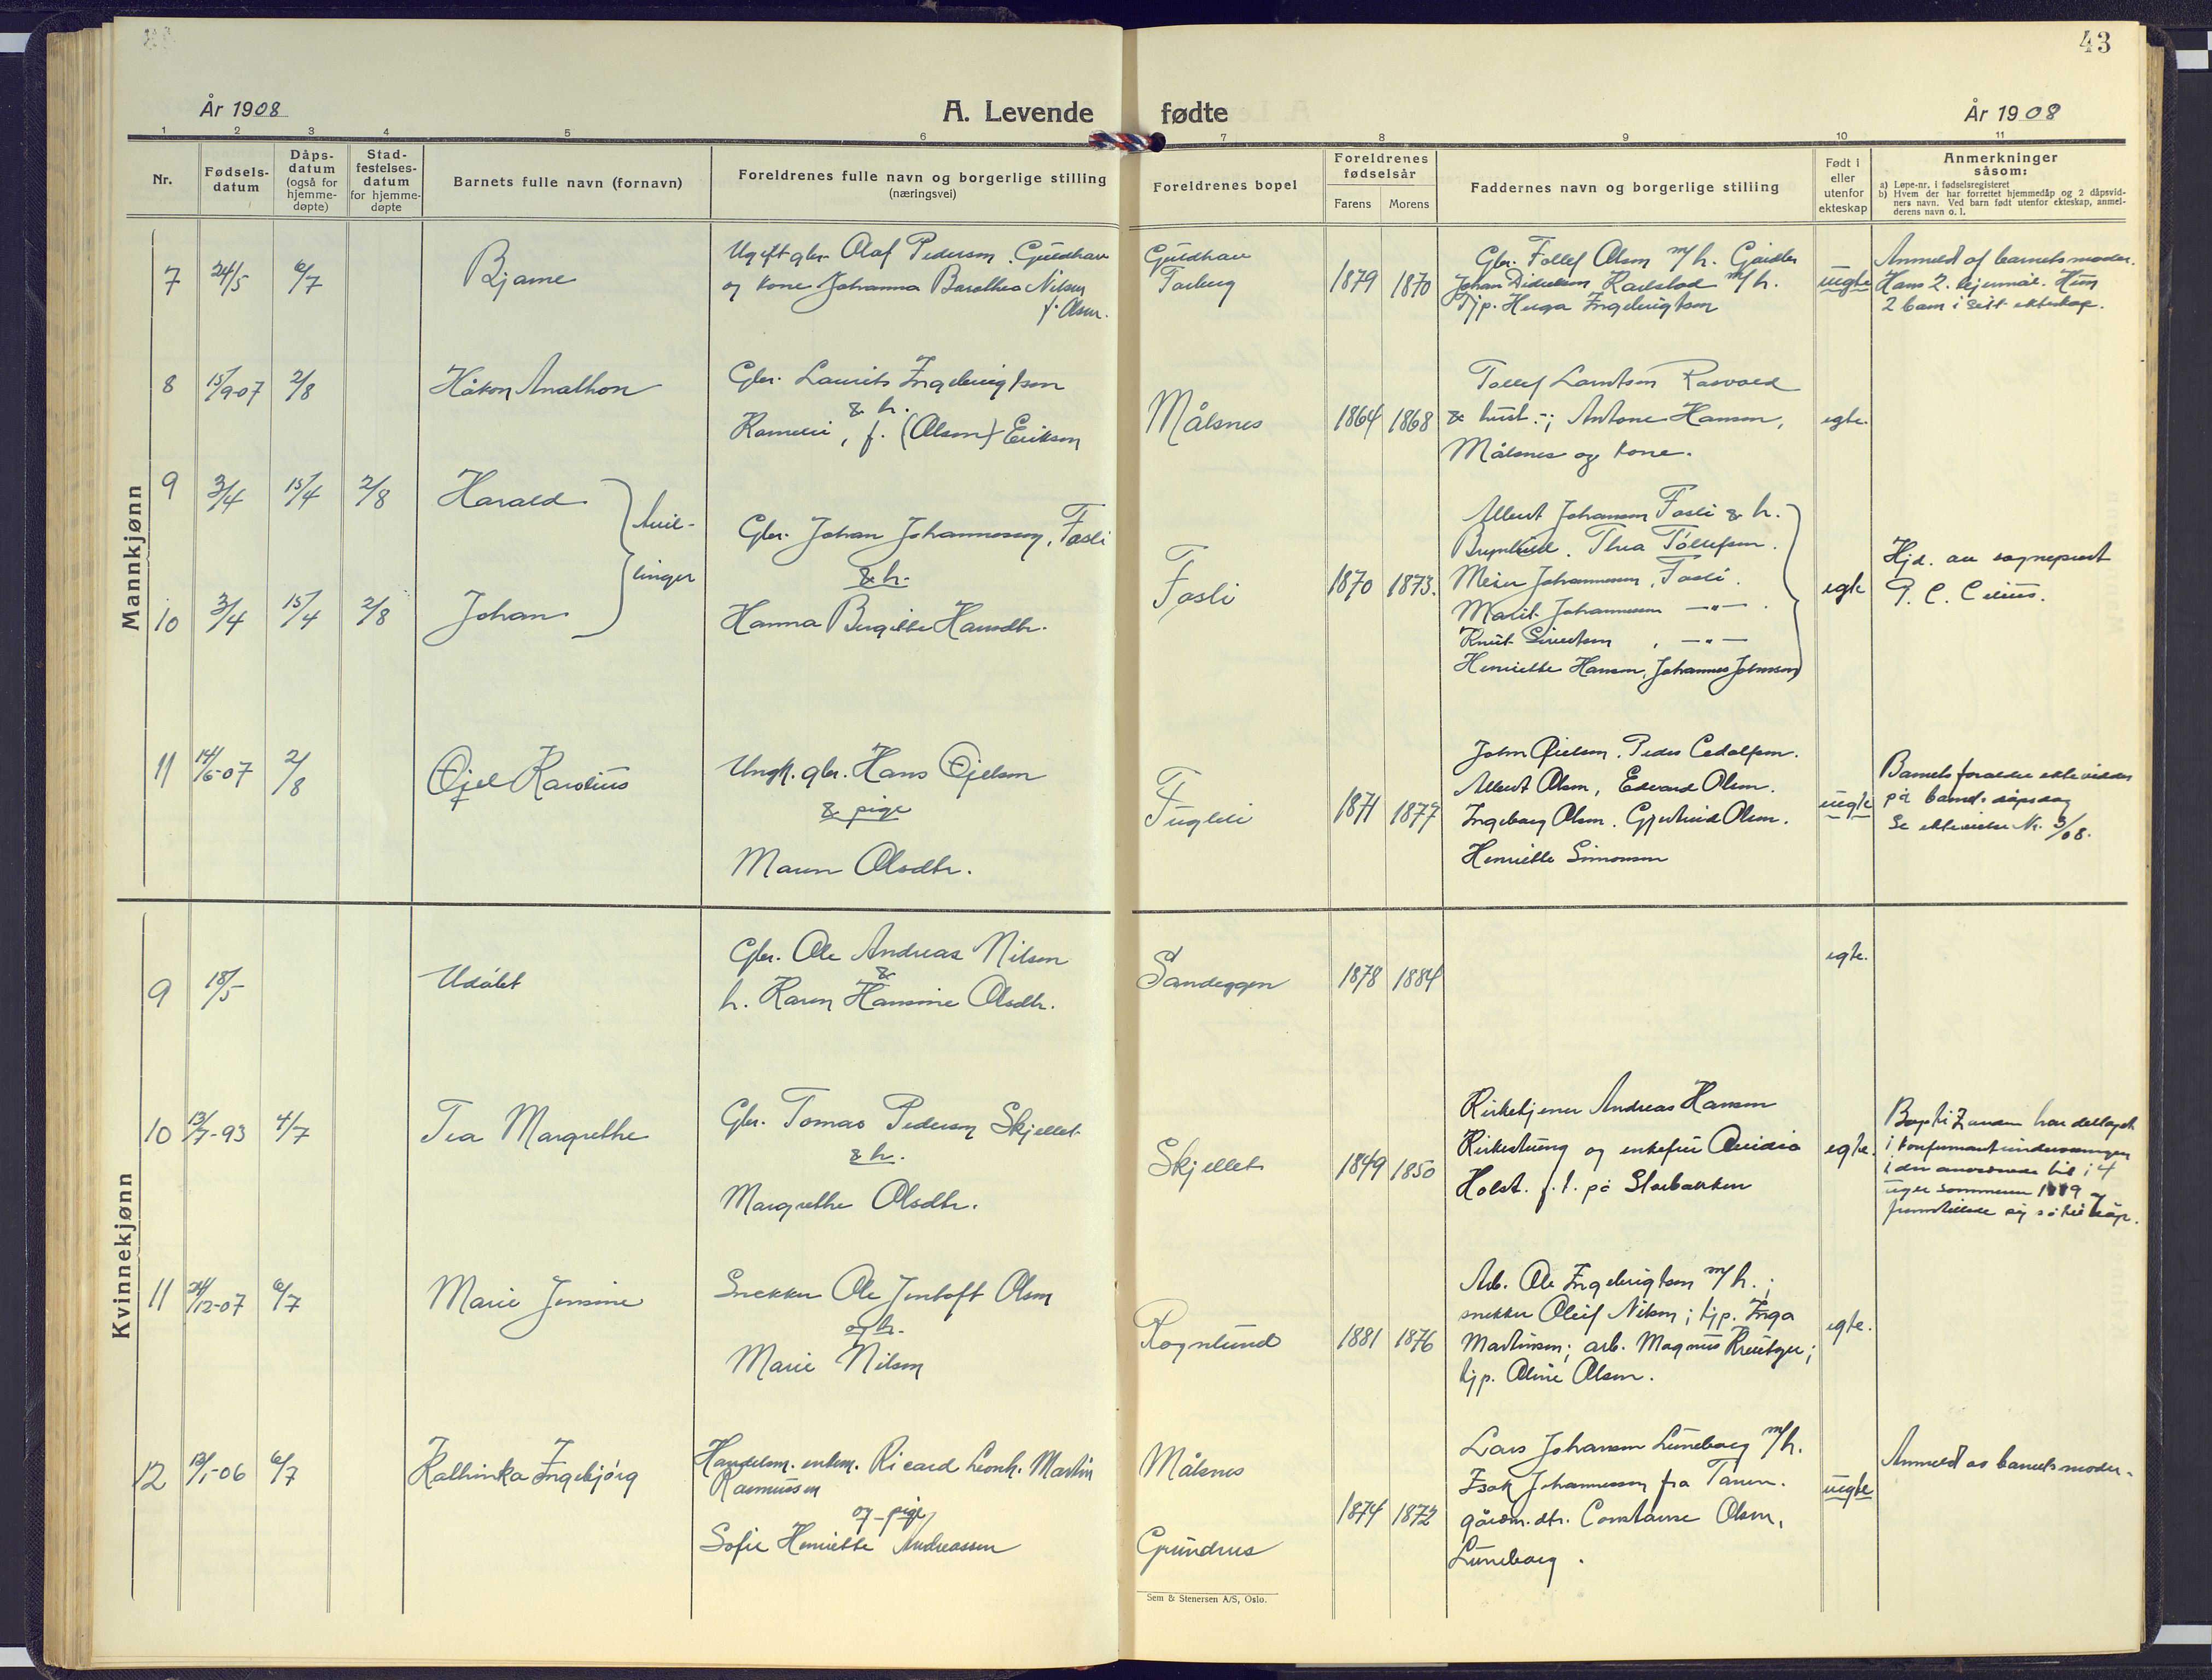 43
År 1908
A. Levende fødte
År 1908
1 2 3 4 5 6 7 8 9 10 11
Nr.
Fødsels-
datum
Dåps-
datum
(også for
hjemme-
døpte)
Stad-
festelses-
datum
for hjemme-
døpte
Barnets fulle navn (fornavn)
Foreldrenes fulle navn og borgerlige stilling
(næringsvei)
Foreldrenes bopel
Foreldrenes
fødselsår
Farens Morens
Faddernes navn og borgerlige stilling
Født i
eller
utenfor
ekteskap
Anmerkninger
såsom:
a) Løpe-nr. i fødselsregisteret
b) Hvem der har forrettet hjemmedåp og 2 dåpsvid-
ners navn. Ved barn født utenfor ekteskap, anmel-
derens navn o. l.
Mannkjønn
7 24/5 6/7 Bjarne
Ugift gbr. Olaf Pederson, Guldhav
og kone Johanna Barolhea Nilsen
f. Olsen.
Guldhav
1879 1870
Gbr. Tollef Olsen m/h.
Johan Didriksen m/h.
Tjp. Ingebrigtsen
uegte
Anmeldt af barnets moder.
Hans 2. lejermål. Hun
2 barn i sitt ekteskap.
8 15/9-07 2/8 Håkon Anathon
Gbr. Laurits Ingebrigtsen
& h.
f. (Olsen) Eriksen
Målsnes
1864 1868
Tollef
& hust.; Antone Hansen,
Målsnes og kone.
egte.
9 3/4 15/4 2/8 Harald
tvil-
linger
10 3/4 15/4 2/8 Johan
Gbr. Johan Johannessen, Fosli
& h.
Hanna Birgitte Hansdtr.
Fosli
1870 1873.
Albert Johansen Fosli & h.
Brynhild. Thea Tollefsen.
Meier Johannessen, Fosli.
Marit Johannessen —"—.
Knut Sivertsen, —"—
Henriette Hansen, Johannes Johnsen
egte
Hjd. av sogneprest
11 14/6-07 2/8 Øjel Karolius
Ungk. gbr. Hans Øjelsen
& pige
Maren Olsdtr.
Fugleli
1871 1877
John Øielsen. Peder
Albert Olsen, Edvard Olsen.
Ingeborg Olsen. Gjertrud Olsen.
Henriette Simonsen
uegte
Barnets foreldre ekteviedes
på barnets dåpsdag
Se ektevielse Nr. 3/08.
Kvinnekjønn
9 18/5 Udøbt
Gbr. Ole Andreas Nilsen
&
h. Karen Hansine Olsdtr.
Sandeggen
1878 1884
egte.
10 13/7-93 4/7 Tea Margrethe
Gbr. Tomas Pedersen Skjellet
& h.
Margrethe Olsdtr.
Skjellet
1849 1850
Kirketjener Andreas Hansen
og enkefru Ovidia
Holst. f. t. på Storbakken
egte.
har deltaget
i konfirmantundervisningen
i den anordnede tid i 4
uger sommeren
fremstillede sig så til dåp.
11 24/12-07 6/7 Marie Jensine
Snekker Ole Jentoft Olsen
og h.
Marie Nilsen
Rognlund
1881 1876
Arb. Ole Ingebrigtsen m/h.;
snekker Oluf Nilsen; tjp. Inga
Martinsen; arb. Magnus Kreutzer;
tjp. Oline Olsen.
egte.
12 13/1-06 6/7 Kathinka Ingebjørg
Handelsm. enkem. Ricard Leonh. Martin
Rasmussen
og pige
Sofie Henriette Andreassen
Målsnes
Grundnes
1874 1872
Lars Johansen Luneborg m/h.
Isak Johannessen fra Tanen.
gårdm. dtr. Constanse Olsen,
Luneborg.
uegte
Anmeldt av barnets moder.
Sem & Stenersen A/S, Oslo.